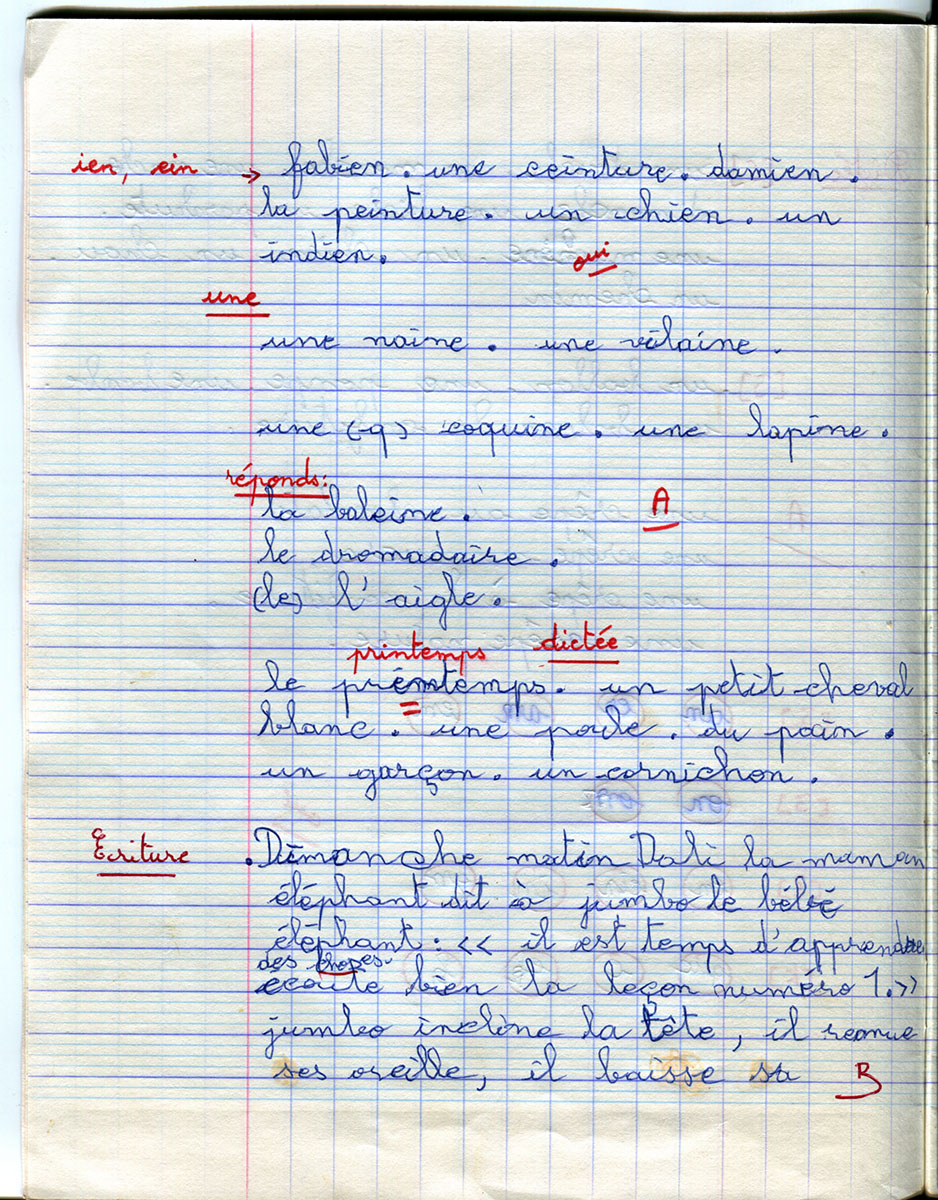 ien, ein → fabien. une ceinture. damien.
la peinture. un chien. un
indien. oui
une
une naine. une vilaine.
une (-q) coquine. une lapine.
réponds:
la baleine. A
le dromadaire.
(le) l'aigle.
printemps dictée
le premtemps. un petit cheval
blanc. une poule. du pain.
un garçon. un cornichon.
Ecriture .Dimanche matin Dali la maman
éléphant dit à jumbo le bébé
éléphant: << il est temps d'apprendre
des choses.
écoute bien la leçon numéro 1.>>
jumbo incline la tête, il remue
ses oreille, il baisse sa B